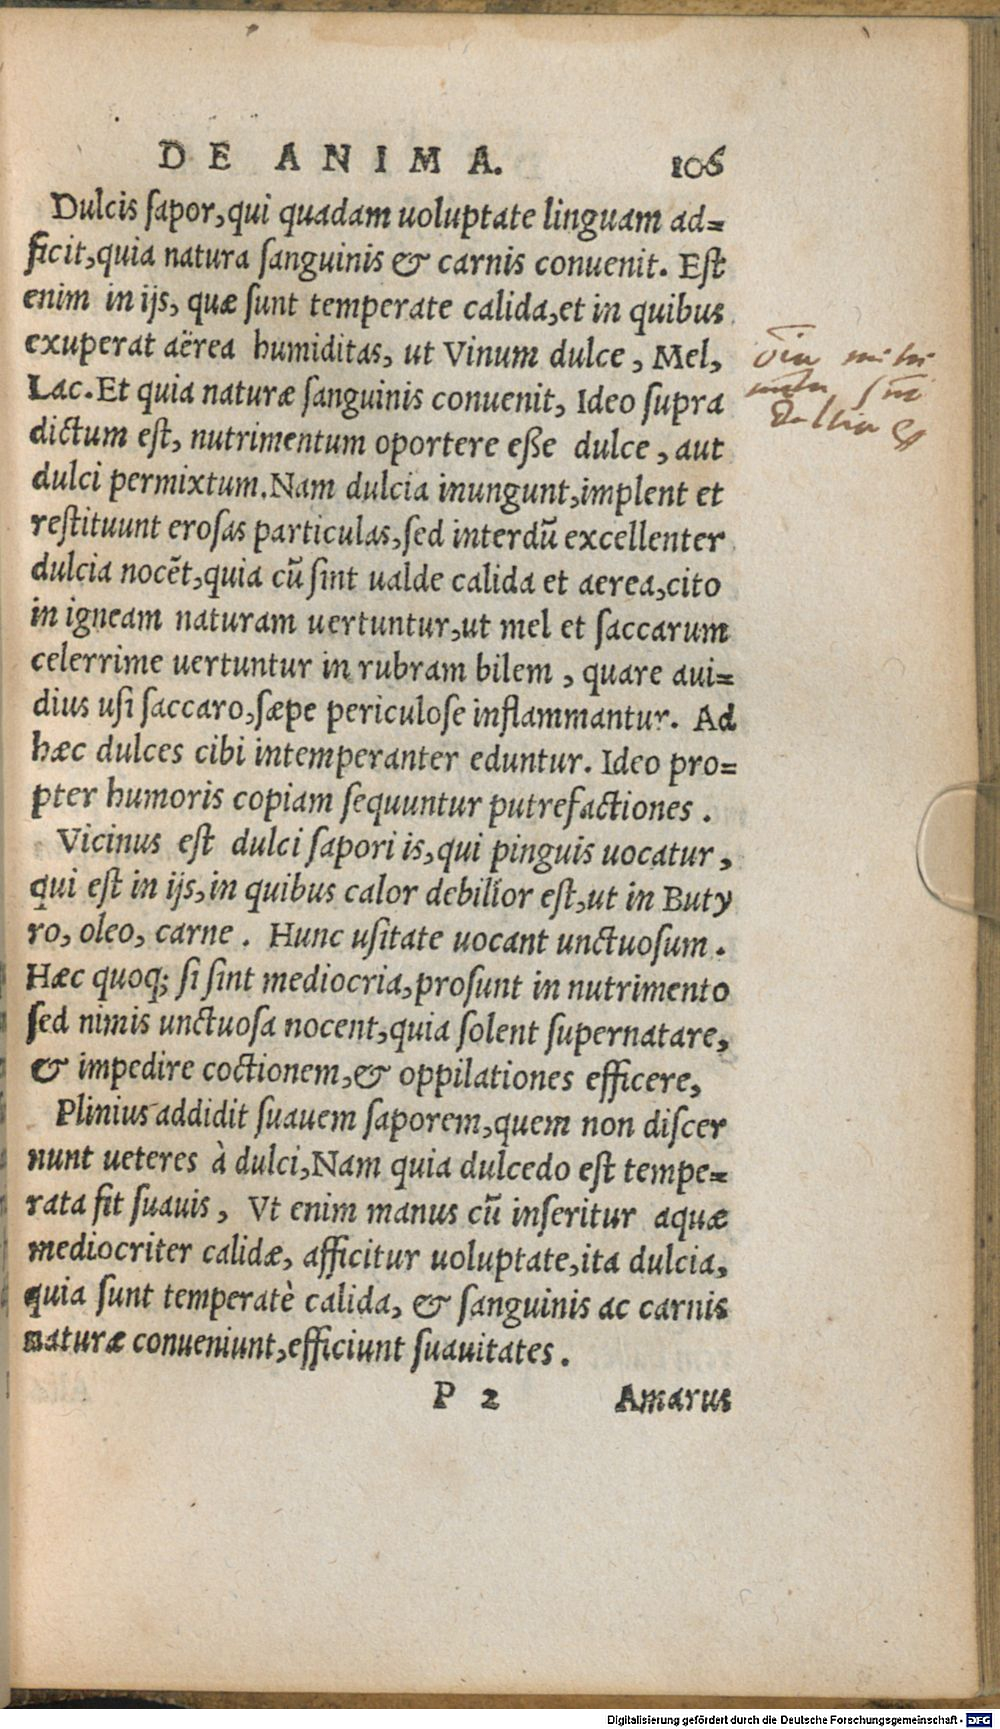 DE ANIMA. 106
Dulcis ſapor,qui quadam uoluptate linguam ad=
ficit,quia natura ſanguinis & carnis conuenit. Eſt
enim in ijs, quæ ſunt temperate calida,et in quibus
exuperat aërea humiditas, ut Vinum dulce, Mel,
Lac.Et quia naturæ ſanguinis conuenit, Ideo ſupra
dictum eſt, nutrimentum oportere eſſe dulce, aut
dulci permixtum.Nam dulcia inungunt,implent et
reſtituunt eroſas particulas,ſed interdũ excellenter
dulcia nocẽt,quia cũ ſint ualde calida et aerea,cito
in igneam naturam uertuntur,ut mel et ſaccarum
celerrime uertuntur in rubram bilem, quare aui=
dius uſi ſaccaro,ſæpe periculoſe inflammantur. Ad
hæc dulces cibi intemperanter eduntur. Ideo pro=
pter humoris copiam ſequuntur putrefactiones.
Vicinus eſt dulci ſapori is,qui pinguis uocatur,
qui eſt in ijs,in quibus calor debilior eſt,ut in Buty
ro, oleo, carne. Hunc uſitate uocant unctuoſum.
Hæc quoq; ſi ſint mediocria,proſunt in nutrimento
ſed nimis unctuoſa nocent,quia ſolent ſupernatare,
& impedire coctionem,& oppilationes efficere,
Plinius addidit ſuauem ſaporem,quem non diſcer
nunt ueteres à dulci,Nam quia dulcedo eſt tempe=
rata fit ſuauis, Vt enim manus cũ inſeritur aquæ
mediocriter calidæ, afficitur uoluptate,ita dulcia,
quia ſunt temperatè calida, & ſanguinis ac carnis
naturæ conueniunt,efficiunt ſuauitates.
P 2 Amarus
Digitalisierung gefördert durch die Deutsche Forschungsgemeinschaft - DFG